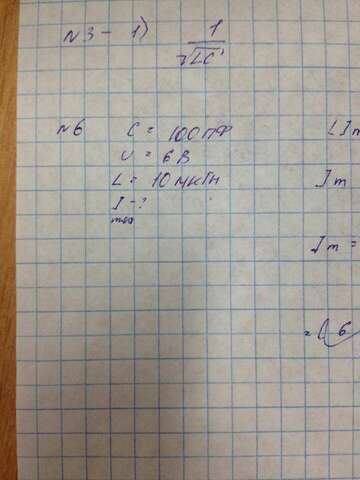 N3 - 1) 1/√LC
N6 C = 100 пФ
U = 6 В
L = 10 мкГн
I - ?
max
LIm
Im
Im =
= ( 6